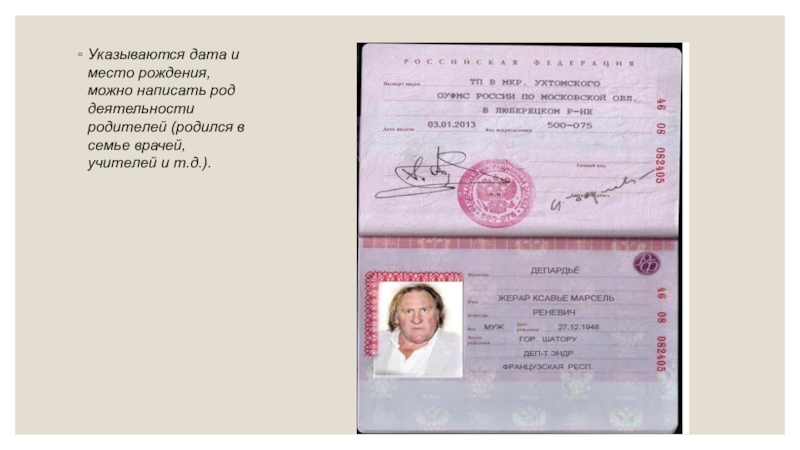 Указываются дата и
место рождения,
можно написать род
деятельности
родителей (родился в
семье врачей,
учителей и т.д.).
РОССИЙСКАЯ ФЕДЕРАЦИЯ
Паспорт выдан
ТП В МКР. УХТОМСКОГО
ОУФМС РОССИИ ПО МОСКОВСКОЙ ОБЛ.
В ЛЮБЕРЕЦКОМ Р-НЕ
Дата выдачи 03.01.2013 Код подразделения 500-075
46 08 082405
Личный код
Фамилия
ДЕПАРДЬЁ
Имя
ЖЕРАР КСАВЬЕ МАРСЕЛЬ
Отчество
РЕНЕВИЧ
Пол МУЖ Дата рождения 27.12.1948
Место рождения
ГОР. ШАТОРУ
ДЕП-Т ЭНДР
ФРАНЦУЗСКАЯ РЕСП.
46 08 082405